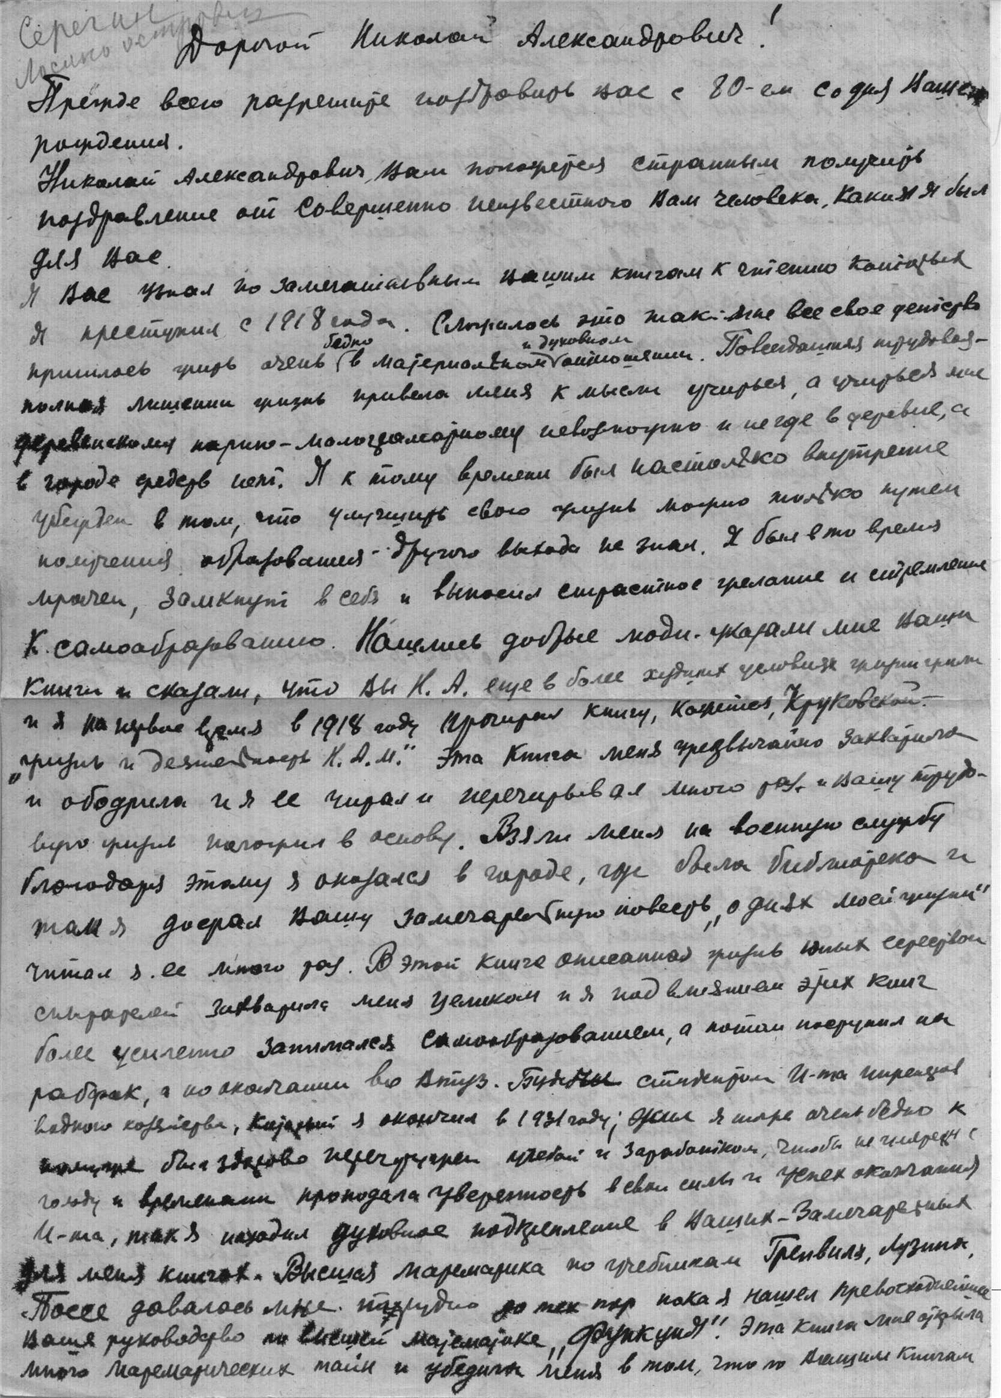 Серегин
Лосиноостровск
Дорогой Николай Александрович!
Прежде всего разрешите поздравить вас с 80-ем со дня Вашего
рождения.
Николай Александрович, Вам покажется странным получить
поздравление от совершенно неизвестного Вам человека, каким я был
для Вас.
Я Вас узнал по замечательным Вашим книгам к чтению которых
я преступил с 1918 года. Сложилось это так: мне все свое детство
пришлось жить очень бедно в материальном и духовном отношении. Повседневная трудовая-
полная лишении жизнь привела меня к мысли учиться, а учиться мне
деревенскому парню-малограмотному невозможно и негде в деревне, а
в городе средств нет. Я к тому времени был настолько внутренне
убежден в том, что улучшить свою жизнь можно только путем
получения образования-другого выхода не знал. Я был в то время
мрачен, замкнут в себя и выносил страстное желание и стремление
к самообразованию. Нашлись добрые люди-указали мне Ваши
книги и сказали, что Вы Н. А. еще в более худших условиях жизни жили
и я на первое время в 1918 году прочитал книгу, кажется, Круковской-
„жизнь и деятельность Н. А. М." Эта книга меня чрезвычайно захватила
и ободрила и я ее читал и перечитывал много раз и Вашу трудо-
вую жизнь положил в основу. Взяли меня на военную службу
благодаря этому я оказался в городе, где была библиотека и
там я достал Вашу замечательную повесть „о днях моей жизни"
читал я ее много раз. В этой книге описанная жизнь юных
захватила меня целиком и я под влиянием этих книг
более усиленно занимался самообразованием, а потом поступил на
рабфак, а по окончании во Втуз. Будучи студентом И-та инженеров
водного хозяйства, который я окончил в 1931 году, жил я тоже очень бедно к
тому же был здорово перегружен учебой и заработком, чтобы не умереть с
голоду и временами пропадала уверенность в свои силы и успех окончания
И-та, так я находил духовное подкрепление в Ваших-замечательных
для меня книгах. Высшая математика по учебникам Гренвиля, Лузина,
Поссе давалась мне трудно до тех пор пока я нашел превосходнейшее
Ваше руководство по высшей математике „Функция". Эта книга мне открыла
много математических тайн и убедила меня в том, что по Вашим книгам